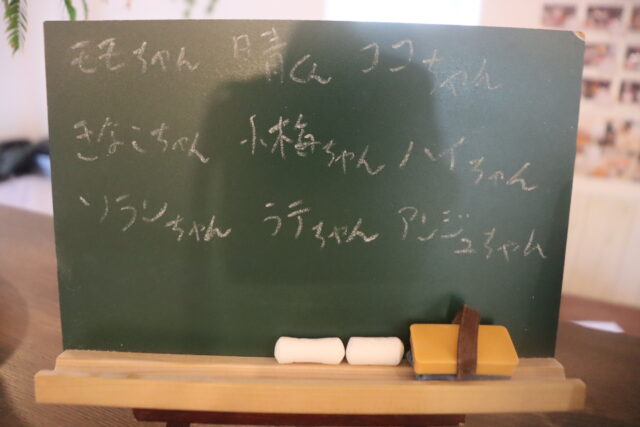 モモちゃん 晴くん ココちゃん
きなこちゃん 小梅ちゃん ハイちゃん
ソランちゃん ラテちゃん アンジュちゃん